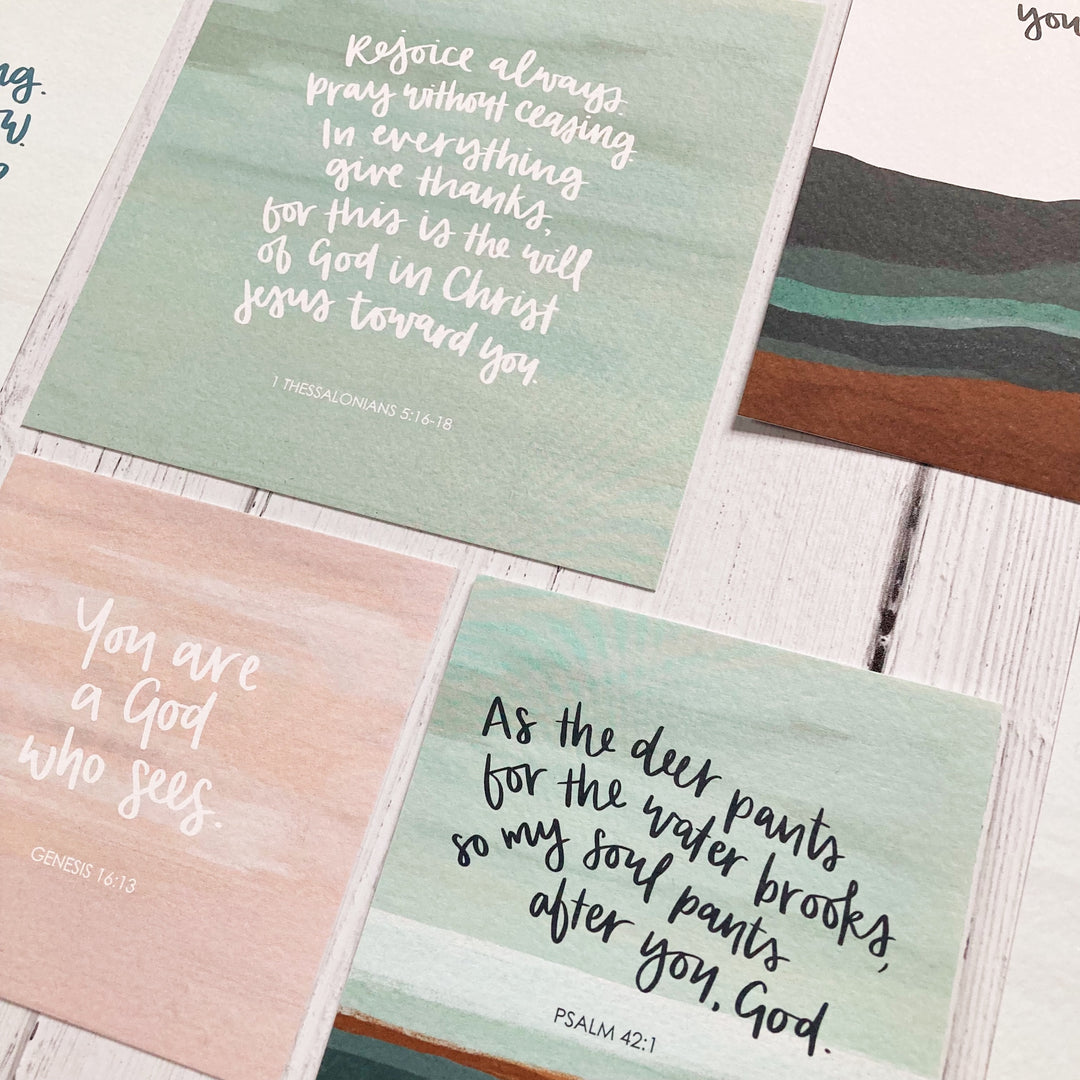 Rejoice always.
Pray without ceasing.
In everything
give thanks,
for this is the will
of God in Christ
Jesus toward you.
1 THESSALONIANS 5:16-18
You are
a God
who sees.
GENESIS 16:13
As the deer pants
for the water brooks,
so my soul pants
after you, God.
PSALM 42:1